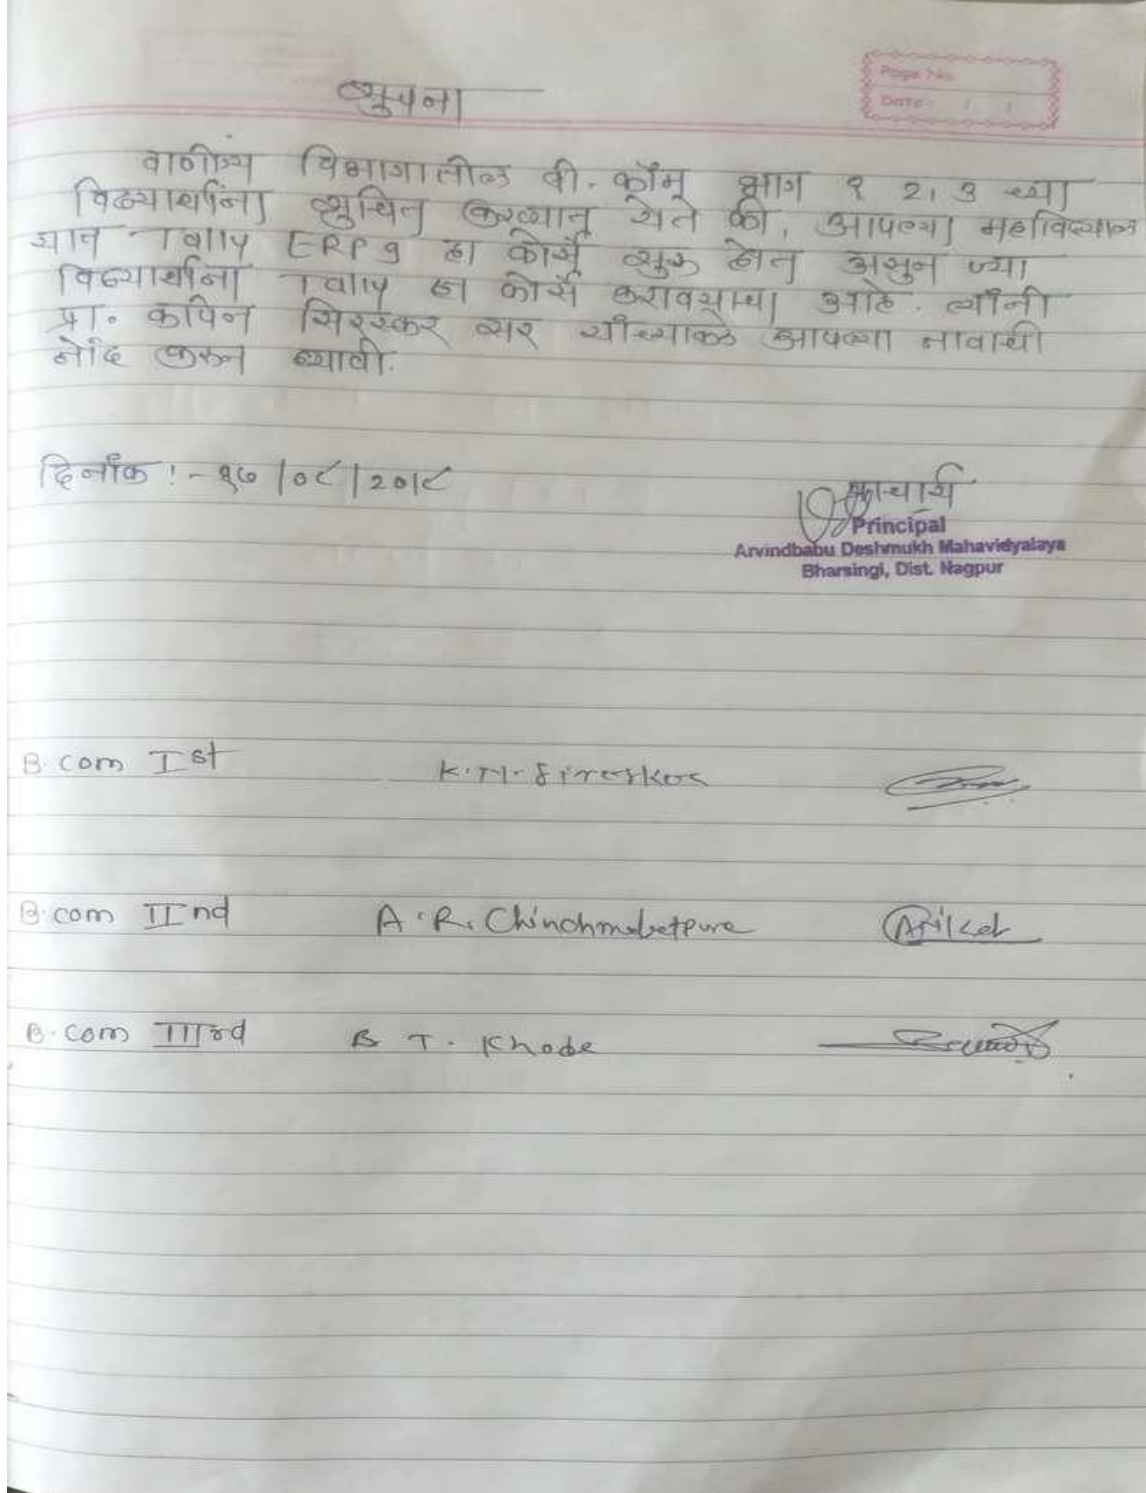 सूचना
Page No.
Date: / /
वाणीज्य विभागातील बी. कॉम भाग १ २, ३ च्या
विद्यार्थांना सुचित करण्यात येते की, आपल्या महाविद्याल
यात Tally ERP 9 हा कोर्स सुरू होत असुन ज्या
विद्यार्थांना Tally हा कोर्स करावयाचा आहे. त्यांनी
प्रा. कपिल सिरस्कर सर यांच्याकडे आपल्या नावाची
नोंद करून घ्यावी.
दिनांक :- १७/०८/२०१८
प्राचार्य
Principal
Arvindbabu Deshmukh Mahavidyalaya
Bharsingi, Dist. Nagpur
B.com Ist K.M. Sireskar
B.com IInd A.R. Chinchmalatpure Aniket
B.com IIIrd B T. Khode